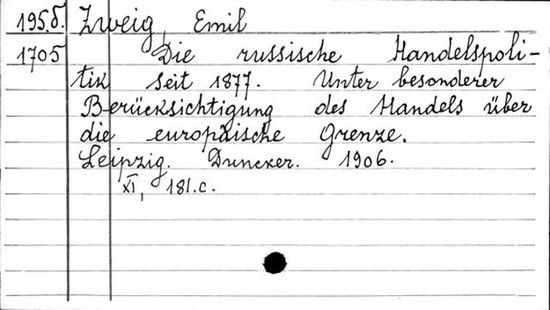 195.б. Zweig, Emil
1705 Die russische Handelspoli-
tik seit 1877. Unter besonderer
Berücksichtigung des Handels über
die europäische Grenze.
Leipzig. Duncker. 1906.
XI, 181.c.